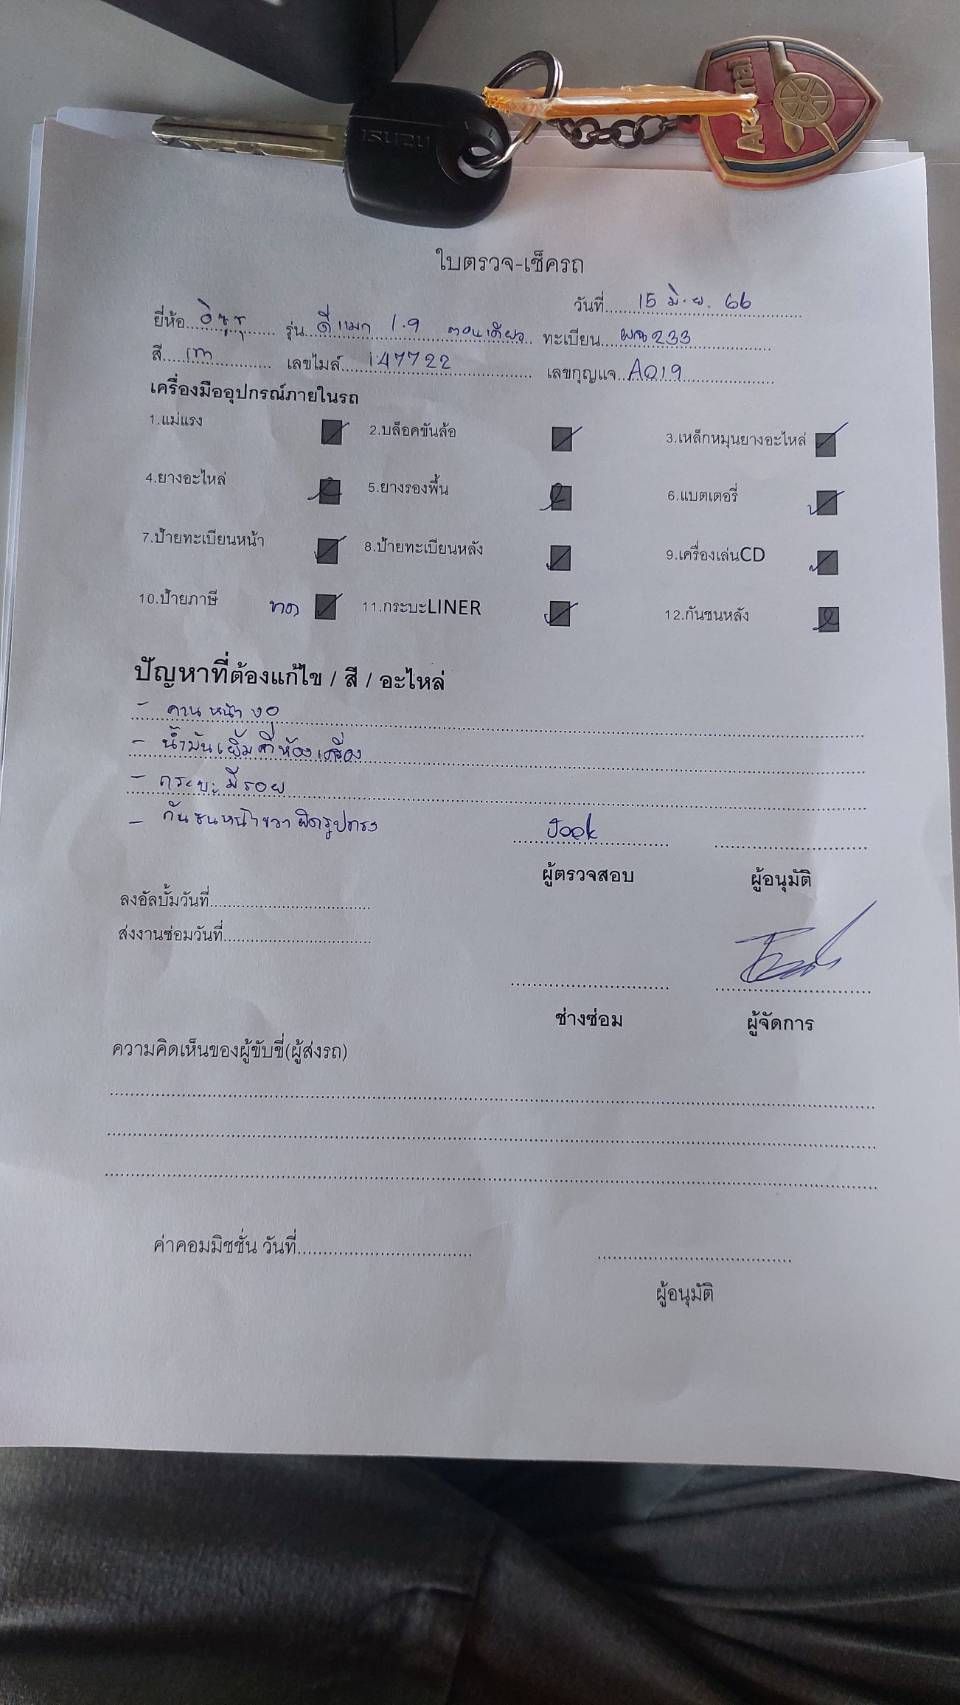 ISUZU
Arsenal
ใบตรวจ-เช็ครถ
วันที่ 15 มิ.ย. 66
ยี่ห้อ อิซูซุ รุ่น ดีแมก 1.9 ตอนเดียว ทะเบียน 233
สี เทา เลขไมล์ 147722 เลขกุญแจ A019
เครื่องมืออุปกรณ์ภายในรถ
1.แม่แรง 2.บล็อคขันล้อ 3.เหล็กหมุนยางอะไหล่
4.ยางอะไหล่ 5.ยางรองพื้น 6.แบตเตอรี่
7.ป้ายทะเบียนหน้า 8.ป้ายทะเบียนหลัง 9.เครื่องเล่นCD
10.ป้ายภาษี ขาด 11.กระบะLINER 12.กันชนหลัง
ปัญหาที่ต้องแก้ไข / สี / อะไหล่
- คานหน้า งอ
- น้ำมันเยิ้มที่ห้องเครื่อง
- กระบะมีรอย
- กันชนหน้าขวา ผิดรูปทรง Jook
ผู้ตรวจสอบ ผู้อนุมัติ
ลงอัลบั้มวันที่
ส่งงานซ่อมวันที่
ช่างซ่อม ผู้จัดการ
ความคิดเห็นของผู้ขับขี่(ผู้ส่งรถ)
ค่าคอมมิชชั่น วันที่
ผู้อนุมัติ